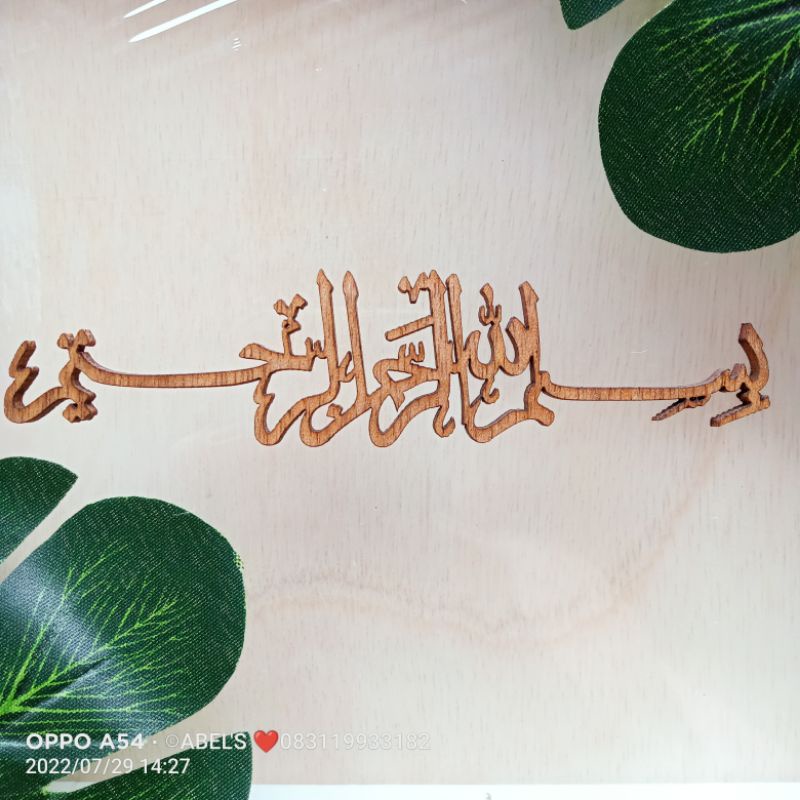 بسم الله الرحمن الرحيم
OPPO A54 · ©ABEL'S❤️083119933182
2022/07/29 14:27